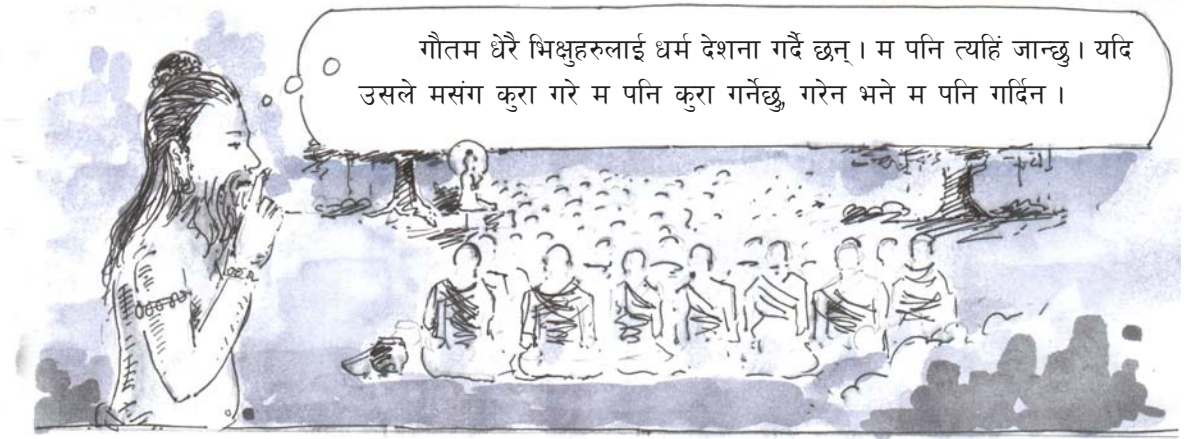 गौतम धेरै भिक्षुहरुलाई धर्म देशना गर्दै छन् । म पनि त्यहिं जान्छु । यदि
उसले मसंग कुरा गरे म पनि कुरा गर्नेछु, गरेन भने म पनि गर्दिन ।